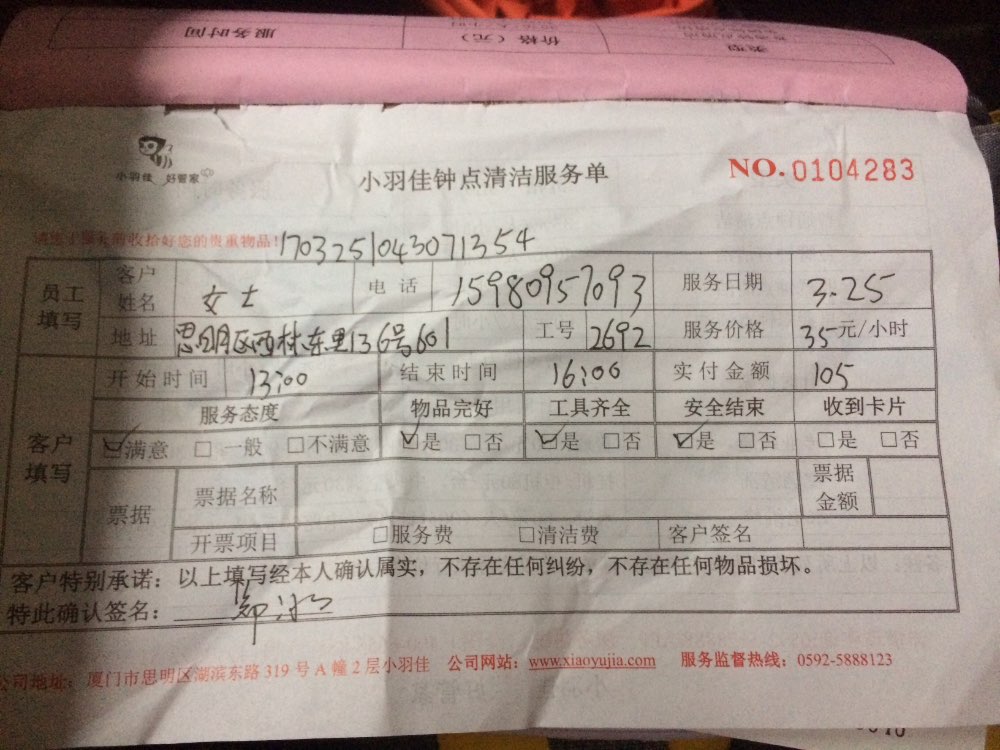 服务时间 价格（元） 类型
小羽佳 好管家
小羽佳钟点清洁服务单
NO.0104283
收拾好您的贵重物品!
170325104307​1354
员工填写 客户姓名 女士 电话 15980957093 服务日期 3.25
地址 思明区西林东里136号601 工号 2692 服务价格 35元/小时
开始时间 13:00 结束时间 16:00 实付金额 105
客户填写 服务态度 物品完好 工具齐全 安全结束 收到卡片
☑满意 □一般 □不满意 ☑是 □否 ☑是 □否 ☑是 □否 □是 □否
票据 票据名称 票据金额
开票项目 □服务费 □清洁费 客户签名
客户特别承诺：以上填写经本人确认属实，不存在任何纠纷，不存在任何物品损坏。
特此确认签名：
公司地址：厦门市思明区湖滨东路319号A幢2层小羽佳 公司网站：www.xiaoyujia.com 服务监督热线：0592-5888123